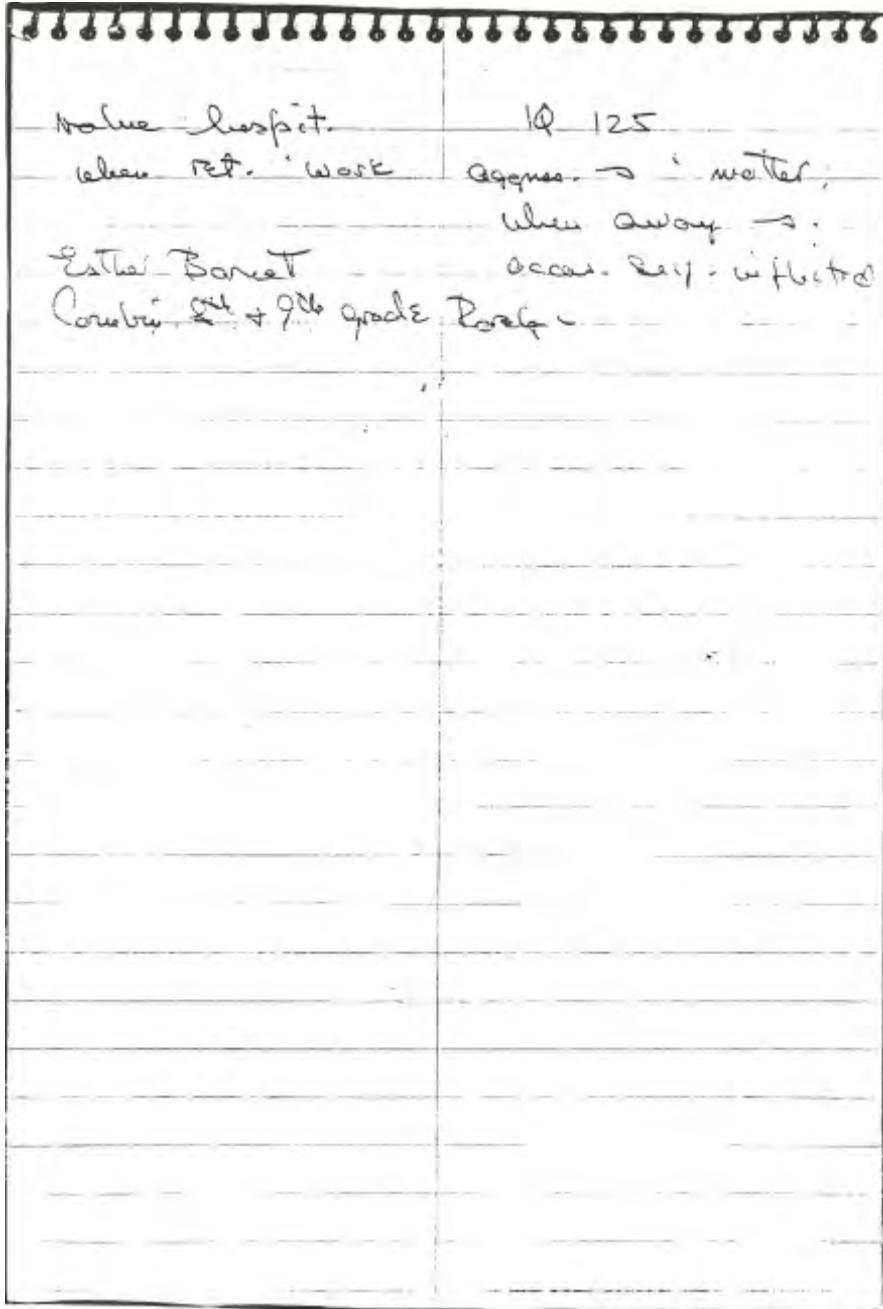 value hospit.
when ret. work
Esther Barret
Combin 8th + 9th grade
IQ 125
aggress. → mother,
when away →
occas. self-inflicted